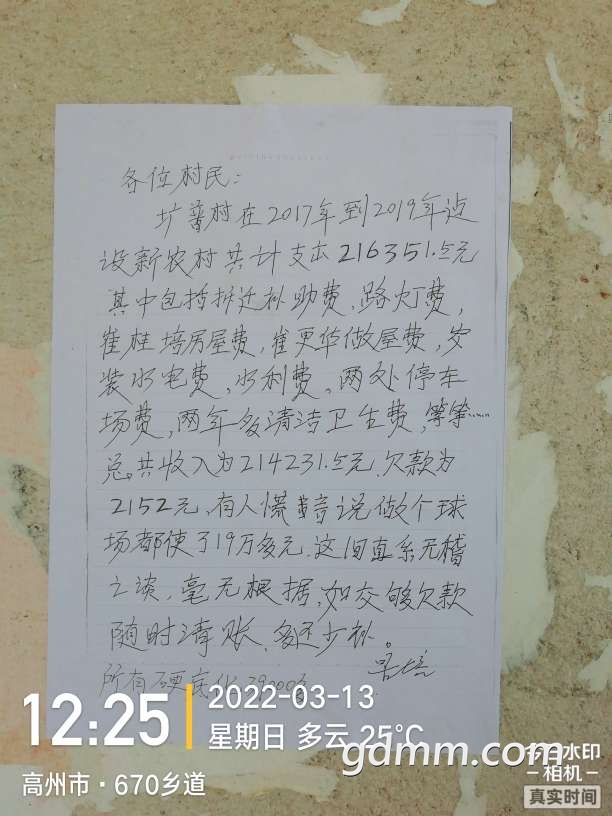 各位村民：
扩普村在2017年到2019年边
设新农村共计支出216351.5元
其中包括拆迁补助费，路灯费，
崔桂培房屋费，崔更华做屋费，安
装水电费，水利费，两处停车
场费，两年多清洁卫生费，等等……
总共收入为214231.5元.欠款为
2152元，有人说做个球
场都使了19万多元.这间直系无稽
之谈，毫无根据，如交够欠款
随时清账，多还少补。
所有硬底化
12:25
2022-03-13
星期日 多云 25°C
高州市·670乡道
gdmm.com
今日水印
-相机-
真实时间